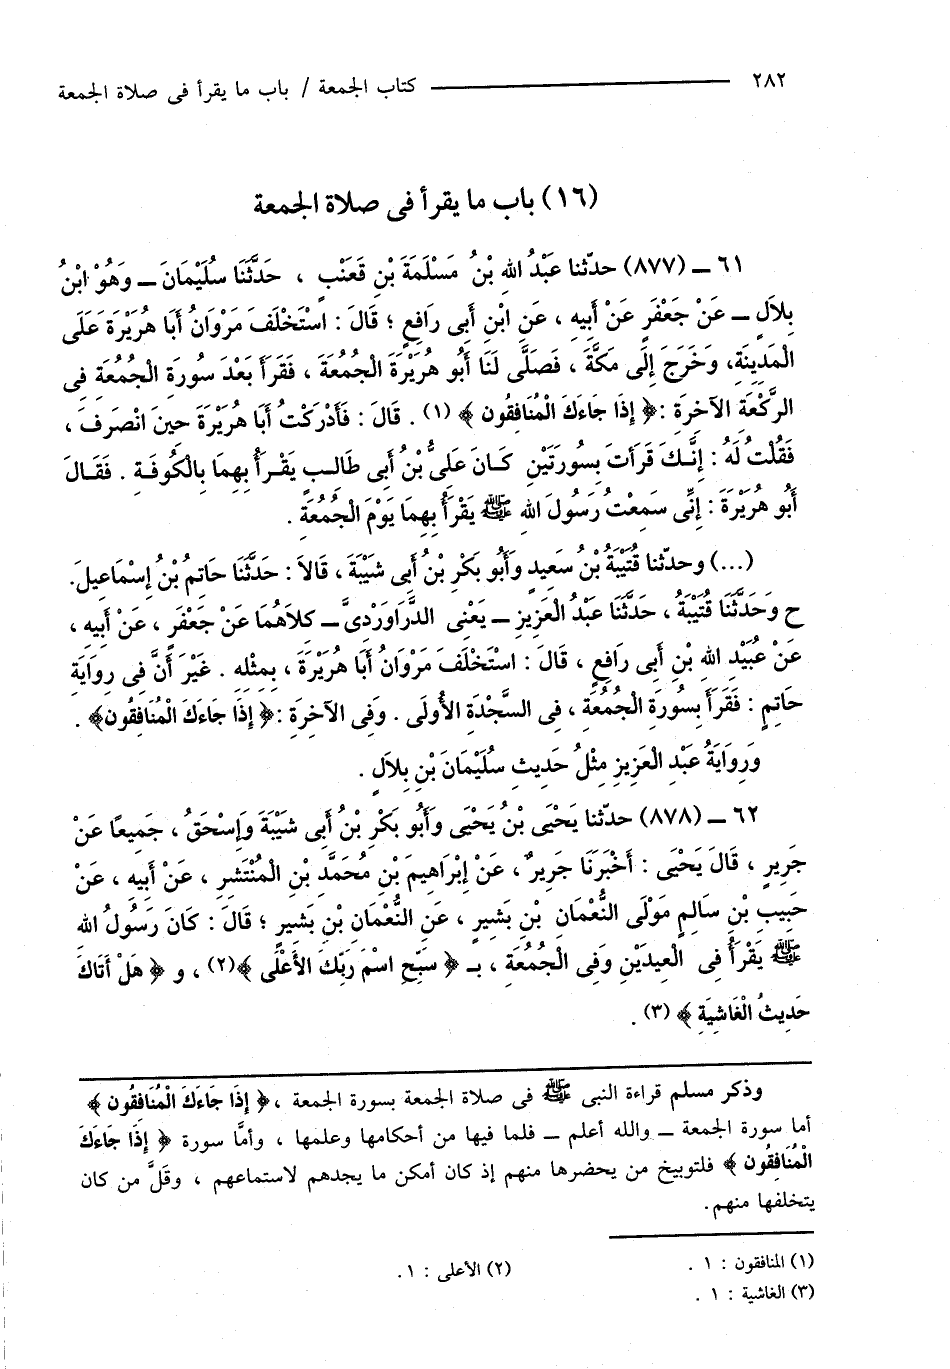 ٢٨٢ ــــــــــــ كتاب الجمعة / باب ما يقرأ فى صلاة الجمعة
(١٦) باب ما يقرأ فى صلاة الجمعة
٦١ ــ (٨٧٧) حدّثنا عَبْدُ اللهِ بْنُ مَسْلَمَةَ بْنِ قَعْنَبٍ ، حَدَّثَنَا سُلَيْمَانَ ــ وَهُوَ ابْنُ
بِلاَلٍ ــ عَنْ جَعْفَرٍ عَنْ أَبِيهِ ، عَنِ ابْنِ أَبِى رَافِعٍ ؛ قَالَ : اسْتَخْلَفَ مَرْوَانُ أَبَا هُرَيْرَةَ عَلَى
الْمَدِينَةِ، وَخَرَجَ إِلَى مَكَّةَ ، فَصَلَّى لَنَا أَبُو هُرَيْرَةَ الْجُمُعَةَ ، فَقَرَأَ بَعْدَ سُورَةِ الْجُمُعَةِ فِى
الرَّكْعَةِ الآخِرَةِ :﴿ إِذَا جَاءَكَ الْمُنَافِقُون ﴾ (١) . قَالَ : فَأَدْرَكْتُ أَبَا هُرَيْرَةَ حِينَ انْصَرَفَ ،
فَقُلْتُ لَهُ : إِنَّكَ قَرَأتَ بِسُورَتَيْنِ كَانَ عَلِىُّ بْنُ أَبِى طَالِبٍ يَقْرَأُ بِهِمَا بِالْكُوفَةِ . فَقَالَ
أَبُو هُرَيْرَةَ : إِنِّى سَمِعْتُ رَسُولَ اللهِ ﷺ يَقْرَأُ بِهِمَا يَوْمَ الْجُمُعَةِ .
(...) وحدّثنا قُتَيْبَةُ بْنُ سَعِيدٍ وَأَبُو بَكْرِ بْنُ أَبِى شَيْبَةَ ، قَالاَ : حَدَّثَنَا حَاتِمُ بْنُ إِسْمَاعِيلَ.
ح وَحَدَّثَنَا قُتَيْبَةُ ، حَدَّثَنَا عَبْدُ الْعَزِيزِ ــ يَعْنِى الدَّرَاوَرْدِىَّ ــ كِلاَهُمَا عَنْ جَعْفَرٍ ، عَنْ أَبِيهِ ،
عَنْ عُبَيْدِ اللهِ بْنِ أَبِى رَافِعٍ ، قَالَ : اسْتَخْلَفَ مَرْوَانُ أَبَا هُرَيْرَةَ ، بِمِثْلِهِ . غَيْرَ أَنَّ فِى رِوَايَةِ
حَاتِمٍ : فَقَرَأَ بِسُورَةِ الْجُمُعَةِ ، فِى السَّجْدَةِ الأُولَى . وَفِى الآخِرَةِ :﴿ إِذَا جَاءَكَ الْمُنَافِقُون﴾ .
وَرِوَايَةُ عَبْدِ الْعَزِيزِ مِثْلُ حَدِيثِ سُلَيْمَانَ بْنِ بِلاَلٍ .
٦٢ ــ (٨٧٨) حدّثنا يَحْيَى بْنُ يَحْيَى وَأَبُو بَكْرِ بْنُ أَبِى شَيْبَةَ وَإِسْحَقُ ، جَمِيعًا عَنْ
جَرِيرٍ ، قَالَ يَحْيَى : أَخْبَرَنَا جَرِيرٌ ، عَنْ إِبْرَاهِيمَ بْنِ مُحَمَّدِ بْنِ الْمُنْتَشِرِ ، عَنْ أَبِيهِ ، عَنْ
حَبِيبِ بْنِ سَالِمٍ مَوْلَى النُّعْمَانِ بْنِ بَشِيرٍ ، عَنِ النُّعْمَانِ بْنِ بَشِيرٍ ؛ قَالَ : كَانَ رَسُولُ اللهِ
ﷺ يَقْرَأُ فِى الْعِيدَيْنِ وَفِى الْجُمُعَةِ ، بِـ ﴿ سَبِّحِ اسْمَ رَبِّكَ الأَعْلَى ﴾(٢) ، وَ ﴿ هَلْ أَتَاكَ
حَدِيثُ الْغَاشِيَةِ ﴾ (٣) .
وذكر مسلم قراءة النبى ﷺ فى صلاة الجمعة بسورة الجمعة ،﴿ إِذَا جَاءَكَ الْمُنَافِقُون ﴾
أما سورة الجمعة ــ والله أعلم ــ فلما فيها من أحكامها وعلمها ، وأمَّا سورة ﴿ إِذَا جَاءَكَ
الْمُنَافِقُون ﴾ فلتوبيخ من يحضرها منهم إذ كان أمكن ما يجدهم لاستماعهم ، وقلَّ من كان
يتخلفها منهم.
(١) المنافقون : ١ . (٢) الأعلى : ١ .
(٣) الغاشية : ١ .